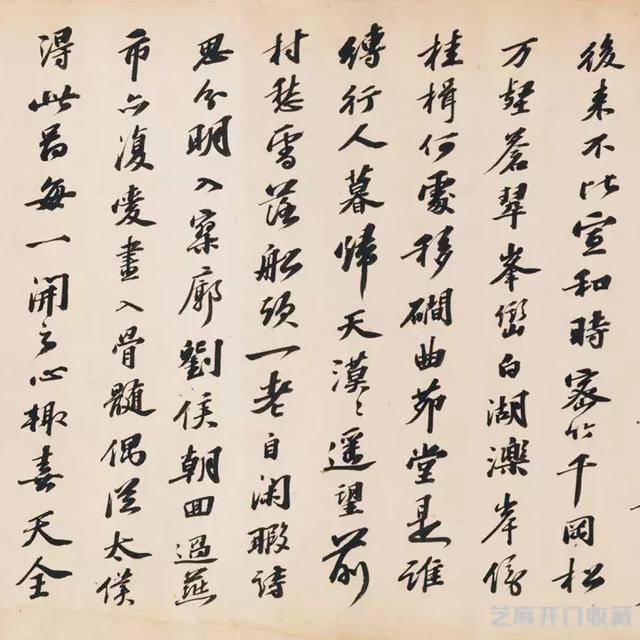 後来不比宣和時密竹千岡松
万壑蒼翠峯巒白湖濼岸傍
桂楫何處移磵曲茆堂是誰
縛行人暮歸天漠〻遥望前
村愁雪落船頭一老自閑暇詩
思分明入寥廓劉侯朝回過燕
市亦復愛畫入骨髓偶從太僕
得此啚每一開之心輙喜天全
芝麻开门收藏